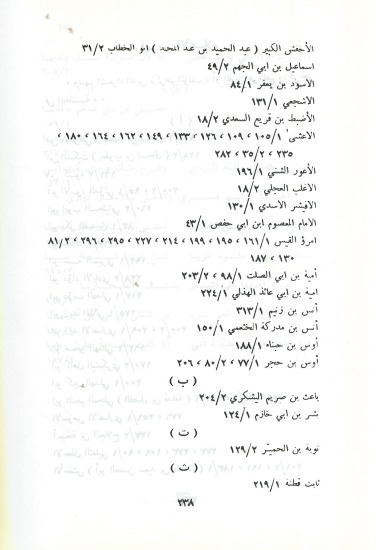 الأخفش الكبير ( عبد الحميد بن عبد المجيد ) ابو الخطاب ٣١/٢
اسماعيل بن ابي الجهم ٤٩/٢
الأسود بن يعفر ٨٤/١
الاشجعي ١٣١/١
الأضبط بن قريع السعدي ١٨/٢
الاعشى ١٠٥/١ ، ١٠٩ ، ١٢٦ ، ١٣٣ ، ١٤٩ ، ١٦٢ ، ١٦٤ ، ١٨٠ ،
٢٣٥ ، ٣٥/٢ ، ٢٨٢
الأعور الشني ١٩٦/١
الاغلب العجلي ١٨/٢
الاقيشر الاسدي ١٣٠/١
الامام المعصوم ابن ابي حفص ٤٣/١
امرؤ القيس ١٦١/١ ، ١٩٥ ، ١٩٩ ، ٢١٤ ، ٢٢٧ ، ٢٩٥ ، ٢٩٦ ، ٨١/٢ ،
١٣٠ ، ١٨٧
أمية بن ابي الصلت ٩٨/١ ، ٢٠٣/٢
امية بن ابي عائذ الهذلي ٢٢٤/١
أنس بن زنيم ٣١٣/١
أنس بن مدركة الخثعمي ١٥٠/١
أوس بن حبناء ١٨٨/١
أوس بن حجر ٧٧/١ ، ٨٠/٢ ، ٢٠٦
( ب )
باعث بن صريم اليشكري ٢٠٤/٢
بشر بن ابي خازم ١٢٤/١
( ت )
توبة بن الحمير ١٢٩/٢
( ث )
ثابت قطنة ٢١٩/١
٢٣٨